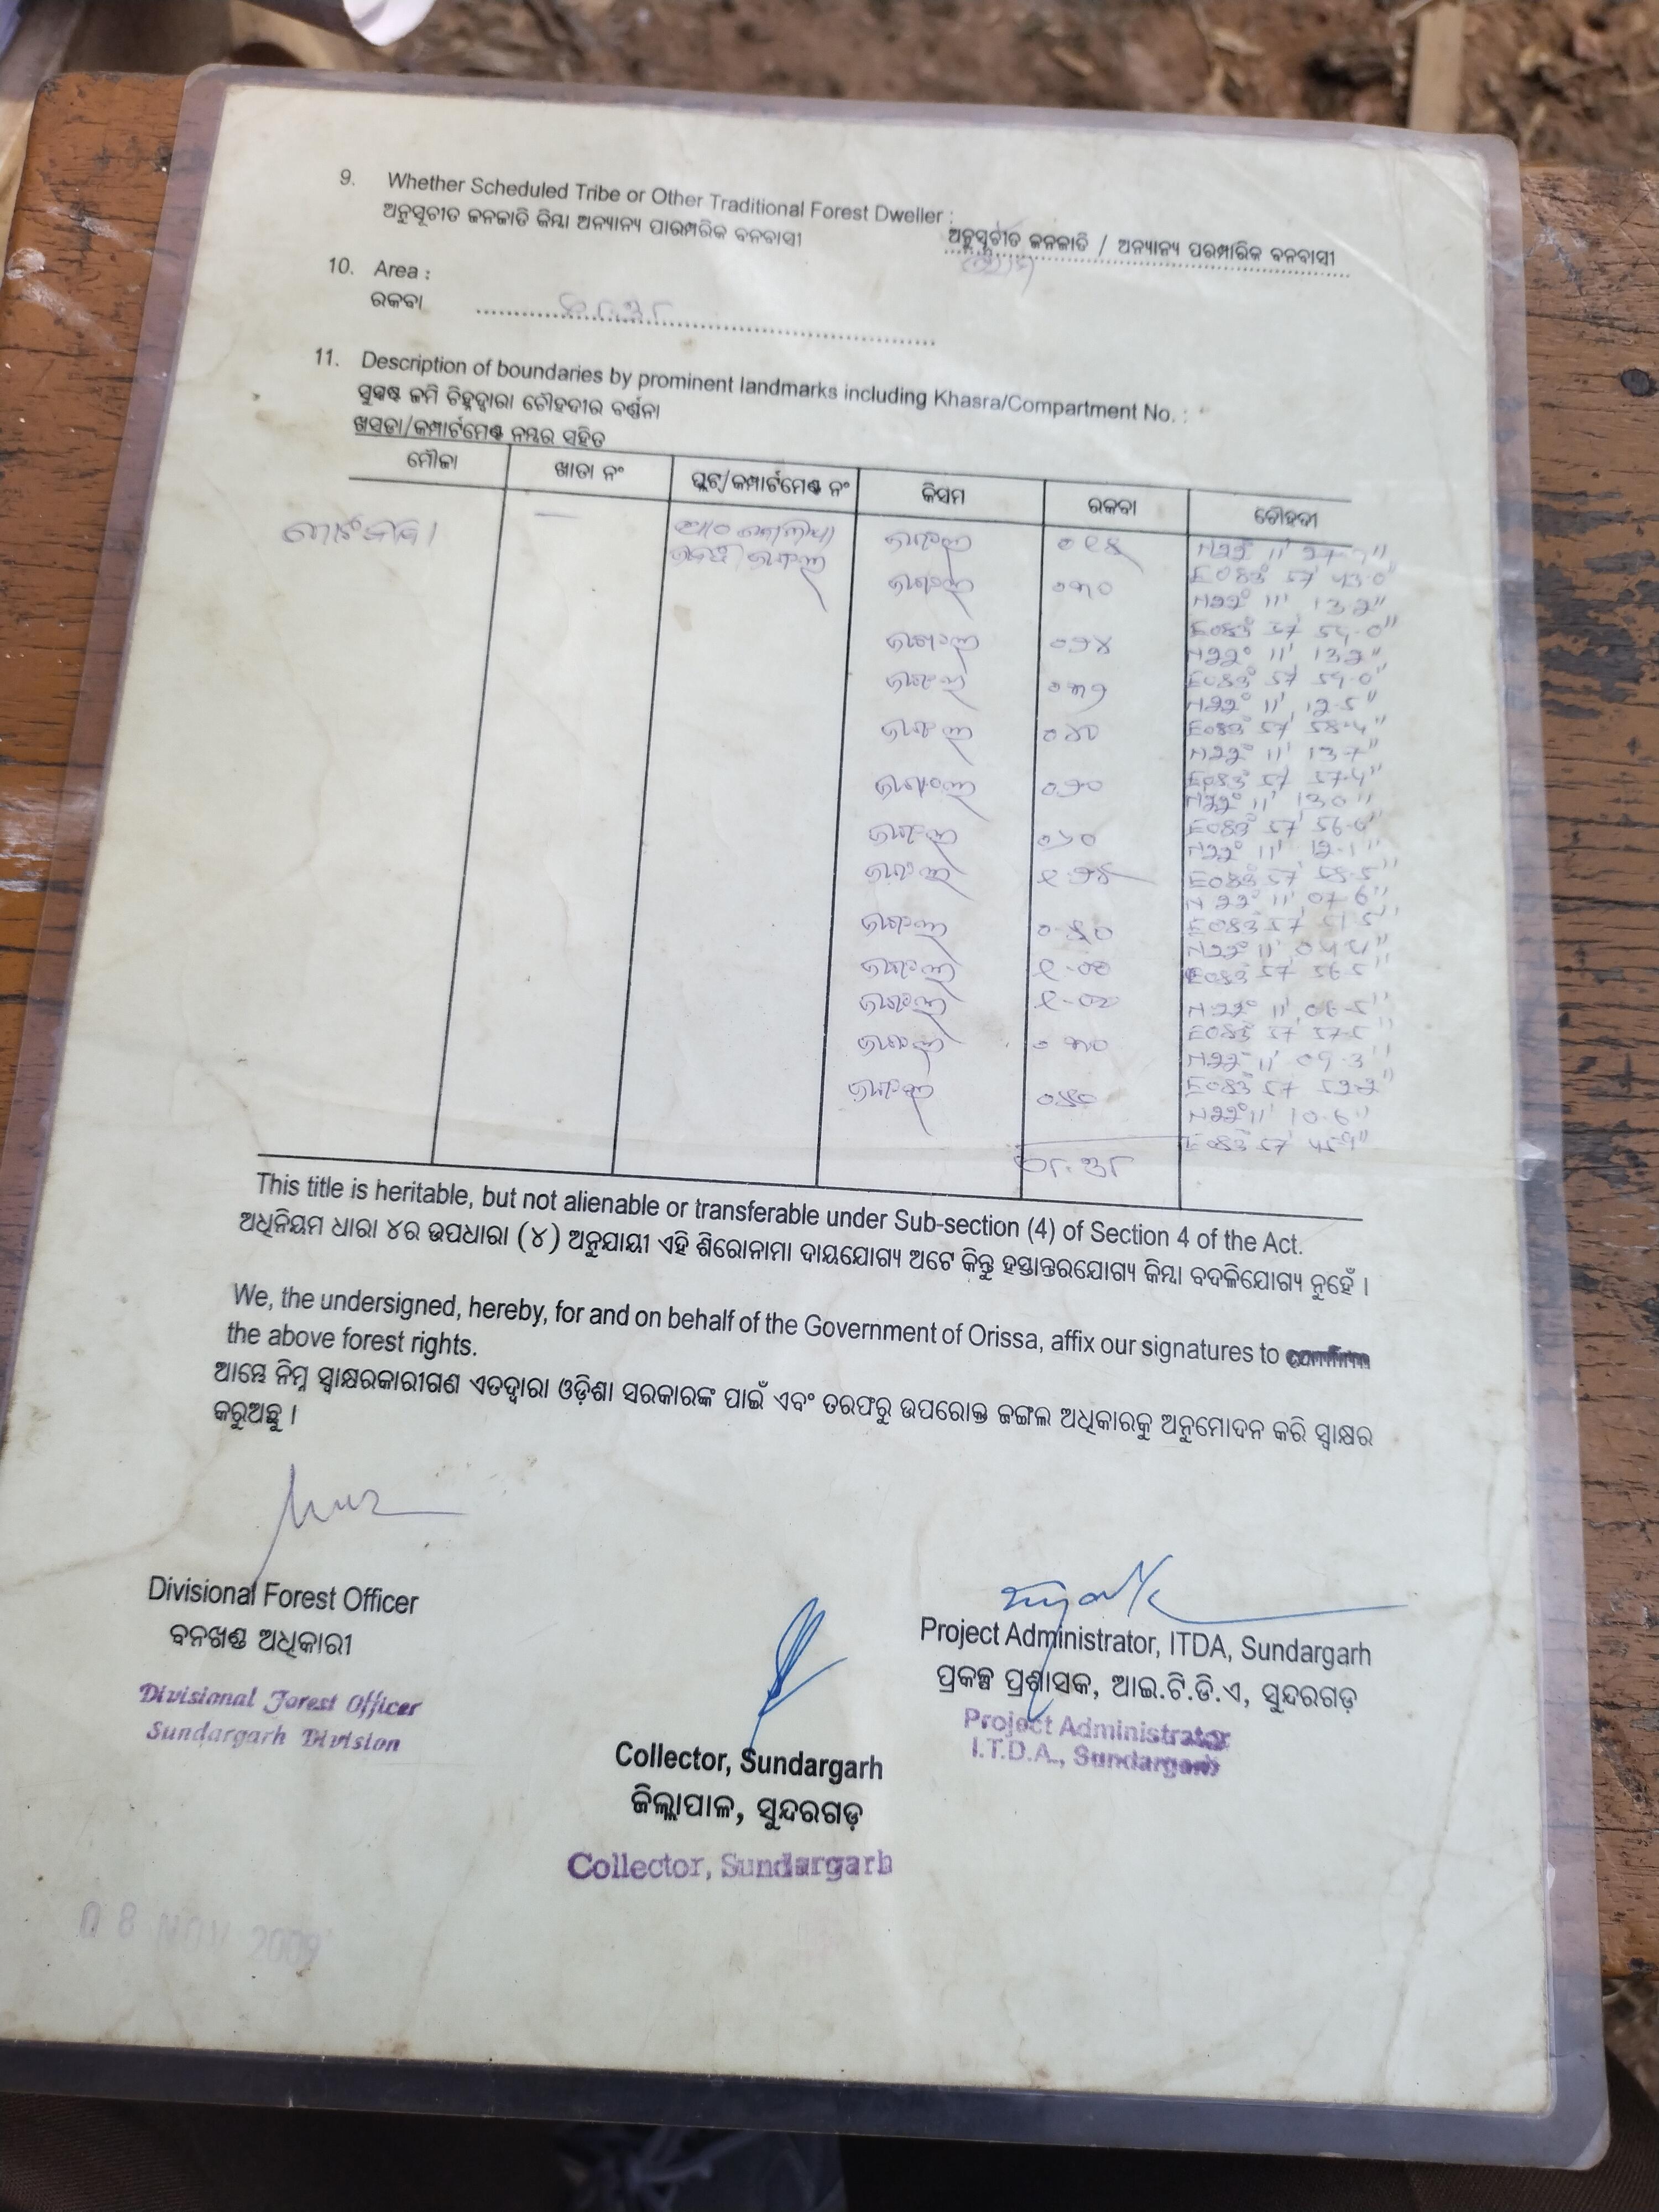 9. Whether Scheduled Tribe or Other Traditional Forest Dweller :
ଅନୁସୂଚୀତ ଜନଜାତି କିମ୍ବା ଅନ୍ୟାନ୍ୟ ପାରମ୍ପରିକ ବନବାସୀ
ଅନୁସୂଚୀତ ଜନଜାତି / ଅନ୍ୟାନ୍ୟ ପରମ୍ପାରିକ ବନବାସୀ
10. Area :
ରକବା
11. Description of boundaries by prominent landmarks including Khasra/Compartment No. :
ସୁସ୍ପଷ୍ଟ ଜମି ଚିହ୍ନଦ୍ୱାରା ଚୌହଦୀର ବର୍ଣ୍ଣନା
ଖସଡା/କମ୍ପାର୍ଟମେଣ୍ଟ ନମ୍ବର ସହିତ
ମୌଜା ଖାତା ନଂ ପ୍ଲଟ୍/କମ୍ପାର୍ଟମେଣ୍ଟ ନଂ କିସମ ରକବା ଚୌହଦୀ
ଜଙ୍ଗଲ
E083° 57' 43.0"
ଜଙ୍ଗଲ ୦୩୦ N22° 11' 13.2"
E083° 57' 54.0"
ଜଙ୍ଗଲ ୦୨୪ N22° 11' 13.2"
E083° 57' 59.0"
ଜଙ୍ଗଲ ୦୩୨ N22° 11' 12.5"
E083° 57' 58.4"
ଜଙ୍ଗଲ N22° 11' 13.7"
E083° 57' 57.4"
ଜଙ୍ଗଲ ୦୨୦ N22° 11' 13.0"
E083° 57' 56.6"
ଜଙ୍ଗଲ ୦୬୦ N22° 11' 12.1"
ଜଙ୍ଗଲ E083° 57' 58.5"
N22° 11' 07.6"
ଜଙ୍ଗଲ E083° 57' 51.5"
N22° 11' 04.4"
ଜଙ୍ଗଲ E083° 57' 56.5"
ଜଙ୍ଗଲ N22° 11' 06.5"
E083° 57' 57.5"
ଜଙ୍ଗଲ ୦ ୩୦ N22° 11' 09.3"
ଜଙ୍ଗଲ E083° 57' 52.2"
N22° 11' 10.6"
E083° 57' 45.9"
This title is heritable, but not alienable or transferable under Sub-section (4) of Section 4 of the Act.
ଅଧିନିୟମ ଧାରା ୪ର ଉପଧାରା (୪) ଅନୁଯାୟୀ ଏହି ଶିରୋନାମା ଦାୟଯୋଗ୍ୟ ଅଟେ କିନ୍ତୁ ହସ୍ତାନ୍ତରଯୋଗ୍ୟ କିମ୍ବା ବଦଳିଯୋଗ୍ୟ ନୁହେଁ ।
We, the undersigned, hereby, for and on behalf of the Government of Orissa, affix our signatures to confirm
the above forest rights.
ଆମ୍ଭେ ନିମ୍ନ ସ୍ୱାକ୍ଷରକାରୀଗଣ ଏତଦ୍ୱାରା ଓଡ଼ିଶା ସରକାରଙ୍କ ପାଇଁ ଏବଂ ତରଫରୁ ଉପରୋକ୍ତ ଜଙ୍ଗଲ ଅଧିକାରକୁ ଅନୁମୋଦନ କରି ସ୍ୱାକ୍ଷର
କରୁଅଛୁ ।
Divisional Forest Officer
ବନଖଣ୍ଡ ଅଧିକାରୀ
Divisional Forest Officer
Sundargarh Division
Project Administrator, ITDA, Sundargarh
ପ୍ରକଳ୍ପ ପ୍ରଶାସକ, ଆଇ.ଟି.ଡି.ଏ, ସୁନ୍ଦରଗଡ଼
Project Administrator
I.T.D.A., Sundargarh
Collector, Sundargarh
ଜିଲ୍ଲାପାଳ, ସୁନ୍ଦରଗଡ଼
Collector, Sundargarh
08 NOV 2009